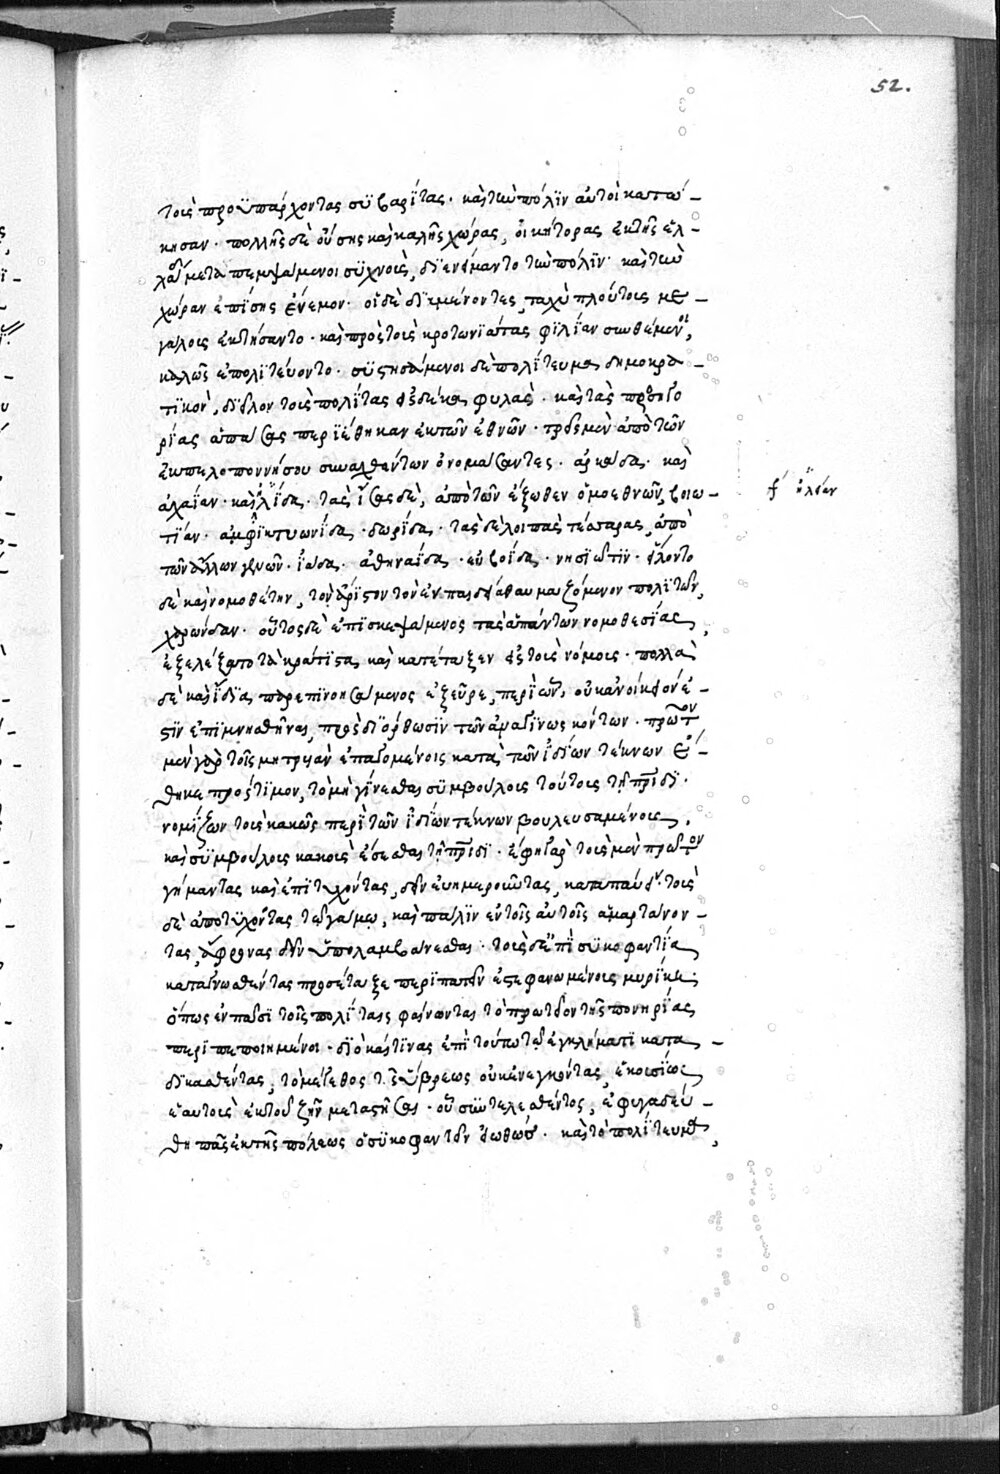 52.
τοὺς προϋπάρχοντας συβαρίτας. καὶ τὴν πόλιν αὐτοὶ κατώ-
κησαν. πολλῆς δὲ οὔσης καὶ καλῆς χώρας, οἰκήτορας ἐκ τῆς ἑλ-
λάδος μεταπεμψάμενοι συχνοὺς, διενείμαντο τὴν πόλιν. καὶ τὴν
χώραν ἐπίσης ἔνεμον. οἱ δὲ διαμένοντες, ταχὺ πλούτους με-
γάλους ἐκτήσαντο. καὶ πρὸς τοὺς κροτωνιάτας φιλίαν συνθέμενοι,
καλῶς ἐπολιτεύοντο. συστησάμενοι δὲ πολίτευμα δημοκρα-
τικὸν, διεῖλον τοὺς πολίτας εἰς δέκα φυλὰς. καὶ τὰς προσηγο
ρίας ἁπάσας περιέθηκαν ἐκ τῶν ἐθνῶν. τρεῖς μὲν ἀπὸ τῶν
ἐκ πελοποννήσου συναχθέντων ὀνομάσαντες. ἀρκάδα. καὶ
ἀχαΐαν. καὶ ἠλίδα. τὰς ἴσας δὲ, ἀπὸ τῶν ἔξωθεν ὁμοεθνῶν, βοιω-
ϝ ἠλείαν
τίαν. ἀμφικτυωνίδα. δωρίδα. τὰς δὲ λοιπὰς τέσσαρας, ἀπὸ
τῶν ἄλλων γενῶν. ἰάδα. ἀθηναΐδα. εὐβοΐδα. νησιῶτιν. εἵλοντο
δὲ καὶ νομοθέτην, τὸν ἄριστον τὸν ἐν παιδείᾳ θαυμαζόμενον πολιτῶν,
χαρώνδαν. οὗτος δὲ ἐπισκεψάμενος τὰς ἁπάντων νομοθεσίας,
ἐξελέξατο τὰ κράτιστα, καὶ κατέταξεν εἰς τοὺς νόμους. πολλὰ
δὲ καὶ ἴδια παρεπινοησάμενος ἐξεῦρε, περὶ ὧν, οὐκ ἀνοίκειόν ἐ-
στιν ἐπιμνησθῆναι, πρὸς διόρθωσιν τῶν ἀναγινωσκόντων. πρῶτον
μὲν γὰρ τοῖς μητρυιὰν ἐπαγομένοις κατὰ τῶν ἰδίων τέκνων ἔ-
θηκε πρόστιμον, τὸ μὴ γίνεσθαι συμβούλους τούτους τῇ πατρίδι.
νομίζων τοὺς κακῶς περὶ τῶν ἰδίων τέκνων βουλευσαμένους,
καὶ συμβούλους κακοὺς ἔσεσθαι τῇ πατρίδι. ἔφη γὰρ τοὺς μὲν πρῶτον
γήμαντας καὶ ἐπιτυχόντας, δεῖν εὐημεροῦντας, καταπαύειν. τοὺς
δὲ ἀποτυχόντας τῷ γάμῳ, καὶ πάλιν ἐν τοῖς αὐτοῖς ἁμαρτάνον-
τας, ἄφρονας δεῖν ὑπολαμβάνεσθαι. τοὺς δ' ἐπὶ συκοφαντίᾳ
καταγνωσθέντας προσέταξε περιπατεῖν ἐστεφανωμένους μυρίκῃ.
ὅπως ἐν πᾶσι τοῖς πολίταις φαίνωνται τὸ πρωτεῖον τῆς πονηρίας
περιπεποιημένοι. διὸ καί τινας ἐπὶ τούτῳ τῷ ἐγκλήματι κατα-
δικασθέντας, τὸ μέγεθος τῆς ὕβρεως οὐκ ἐνεγκόντας, ἑκουσίως
ἑαυτοὺς ἐκ τοῦ ζῆν μεταστῆσαι. οὗ συντελεσθέντος, ἐφυγαδεύ-
θη πᾶς ἐκ τῆς πόλεως ὁ συκοφαντεῖν εἰωθώς. καὶ τὸ πολίτευμα,